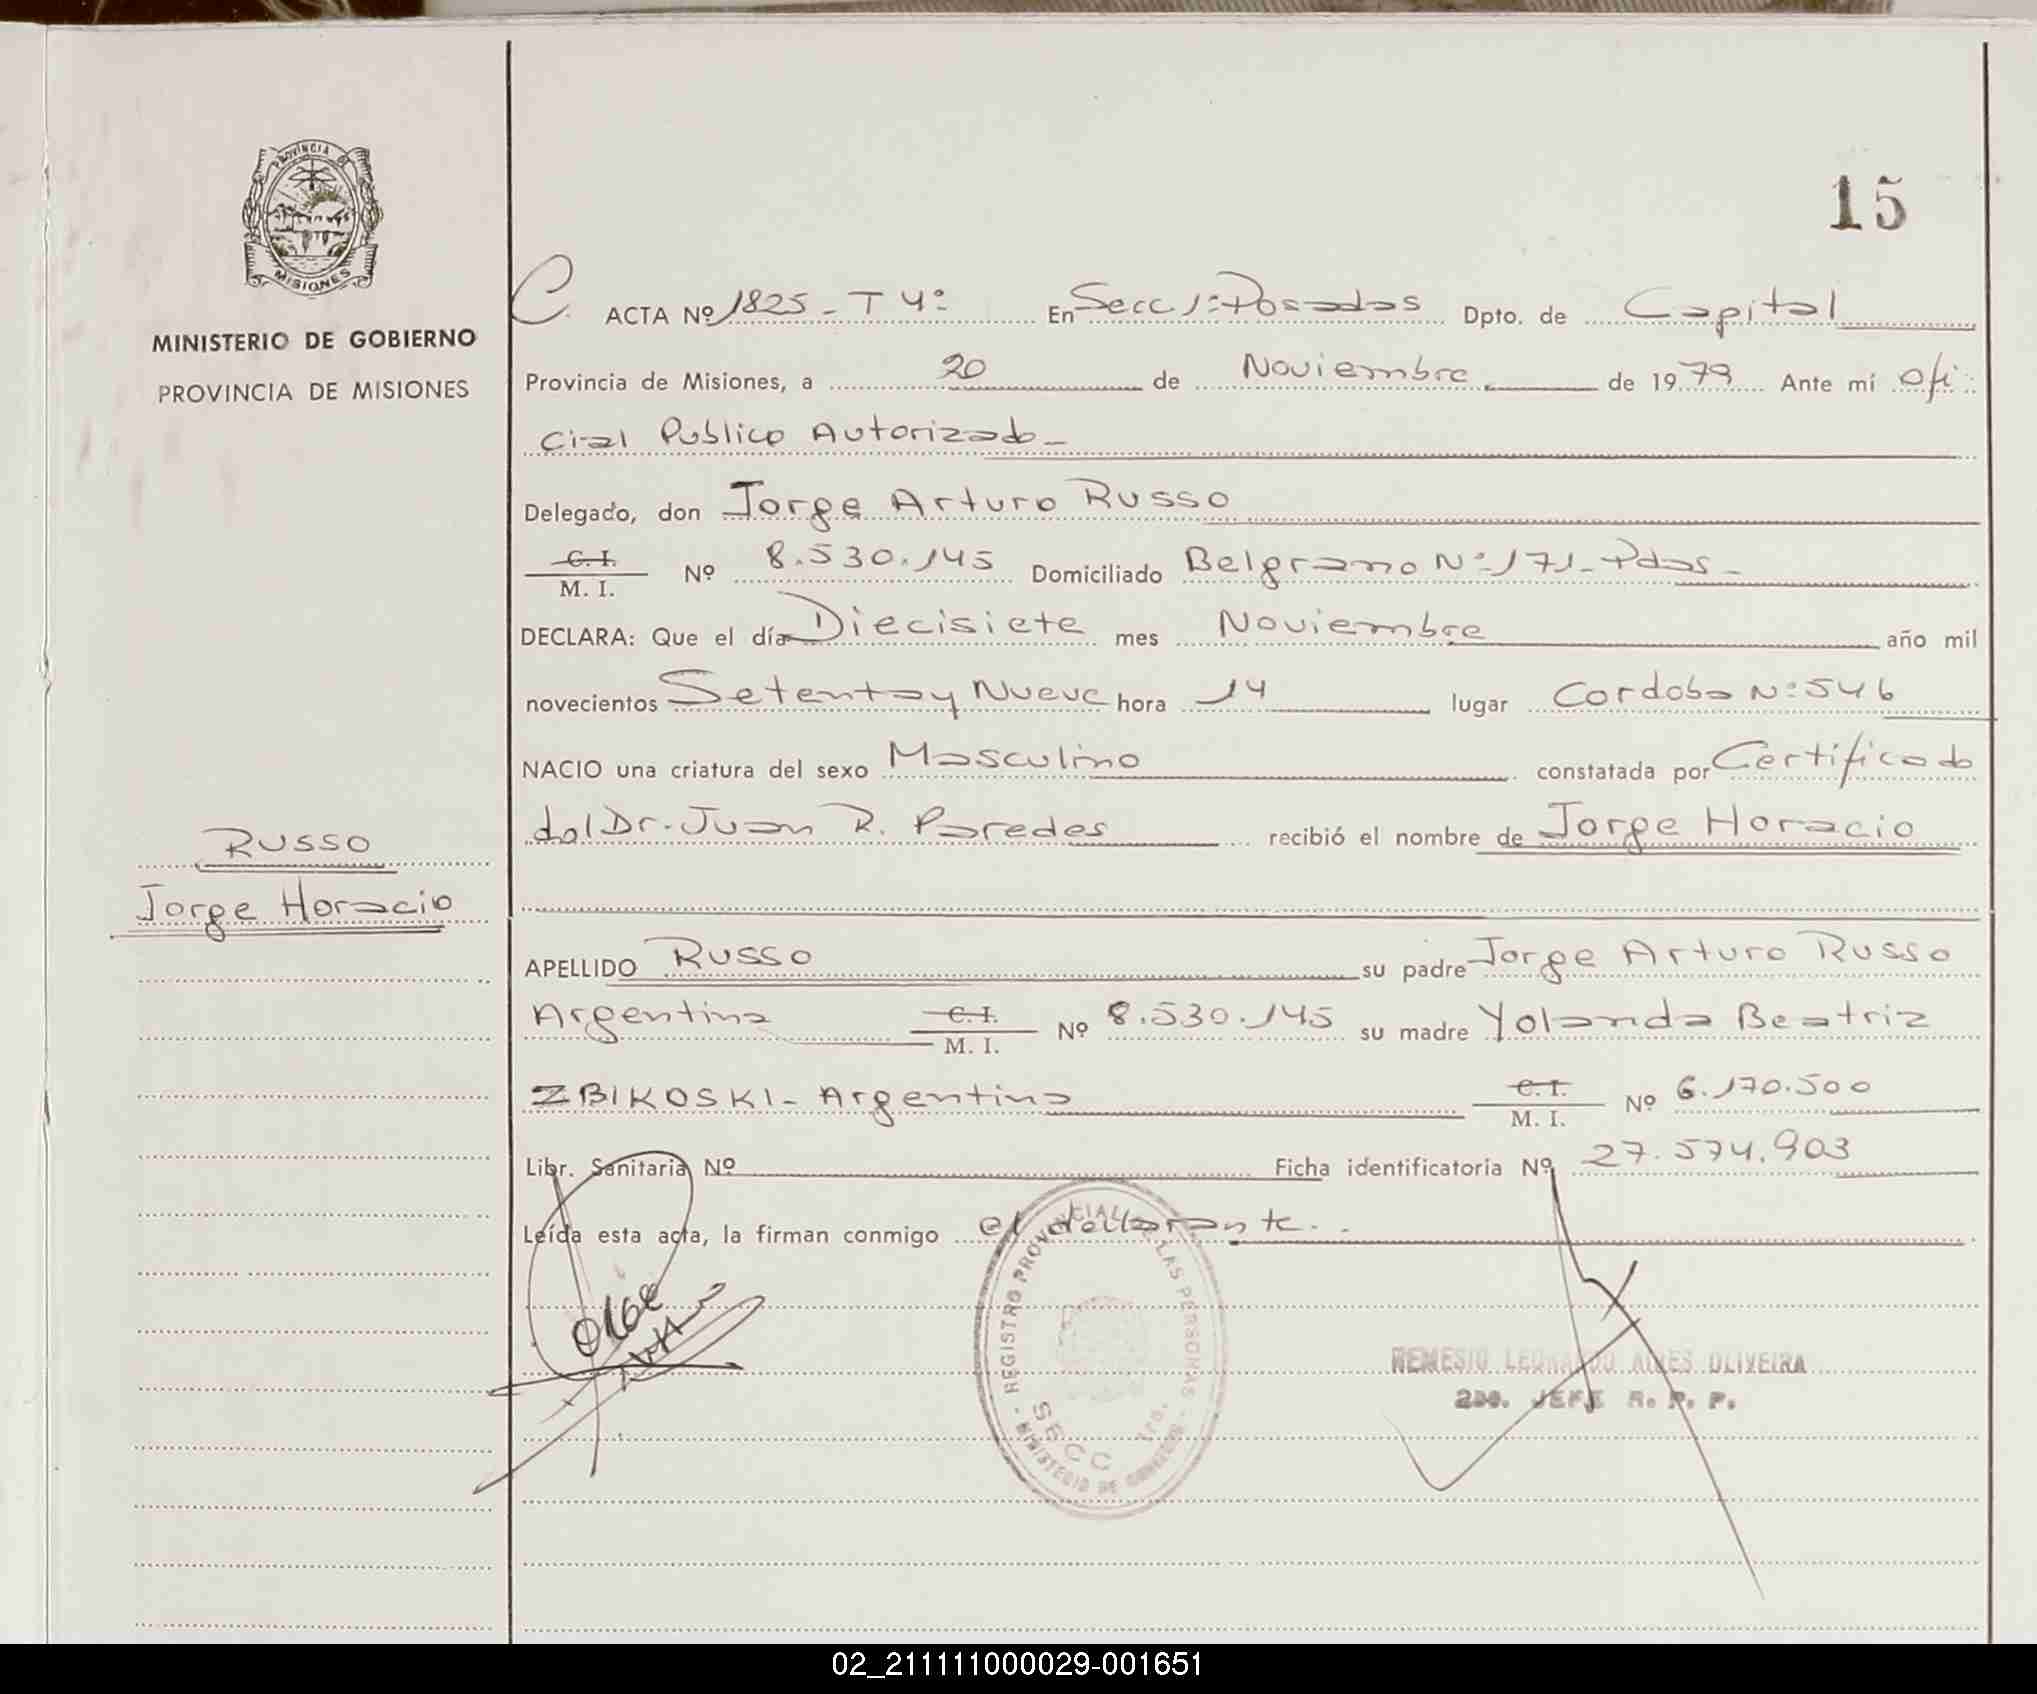 15
PROVINCIA DE
MISIONES
MINISTERIO DE GOBIERNO
PROVINCIA DE MISIONES
RUSSO
Jorge Horacio
C. ACTA Nº 1825 - T 4º En Secc 1º Posadas Dpto. de Capital
Provincia de Misiones, a 20 de Noviembre de 1979 Ante mí Ofi
cial Publico Autorizado -
Delegado, don Jorge Arturo Russo
C. I.
M. I. Nº 8.530.145 Domiciliado Belgrano Nº 171 - Pdas -
DECLARA: Que el día Diecisiete mes Noviembre año mil
novecientos Setenta y Nueve hora 14 lugar Cordoba Nº 546
NACIO una criatura del sexo Masculino constatada por Certificado
del Dr. Juan R. Paredes recibió el nombre de Jorge Horacio
APELLIDO Russo su padre Jorge Arturo Russo
Argentina C. I.
M. I. Nº 8.530.145 su madre Yolanda Beatriz
ZBIKOSKI - Argentina C. I.
M. I. Nº 6.170.500
Libr. Sanitaria Nº Ficha identificatoria Nº 27.574.903
Leída esta acta, la firman conmigo el declarante.
REGISTRO PROVINCIAL DE LAS PERSONAS
SECC 1ra.
MINISTERIO DE GOBIERNO
REMESIO LEONARDO AIRES OLIVEIRA
2do. JEFE R. P. P.
02_211111000029-001651